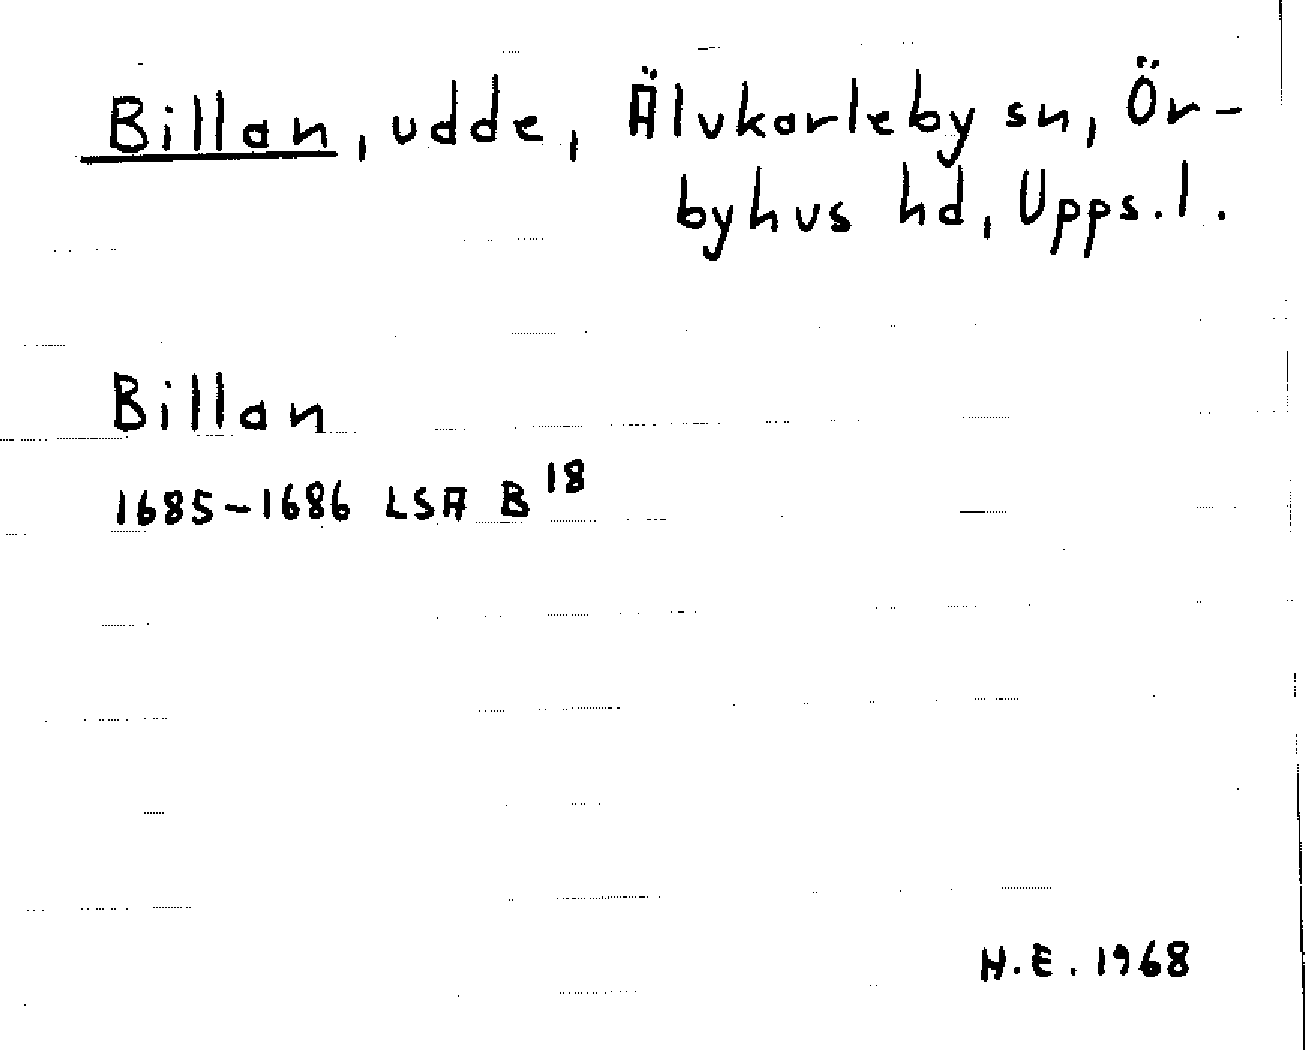 Billan, udde, Älvkarleby sn, Ör-
byhus hd, Upps.l.
Billan
1685-1686 LSA B 18
H.E. 1968